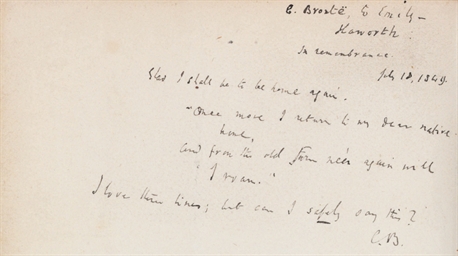 C. Brontë, to Emily -
Haworth.
In remembrance.
July 18, 1849.
Glad I shall be to be home again.
"Once more I return to my dear native
home,
And from the old form ne'er again will
I roam."
I love these lines; but can I safely say this?
C.B.